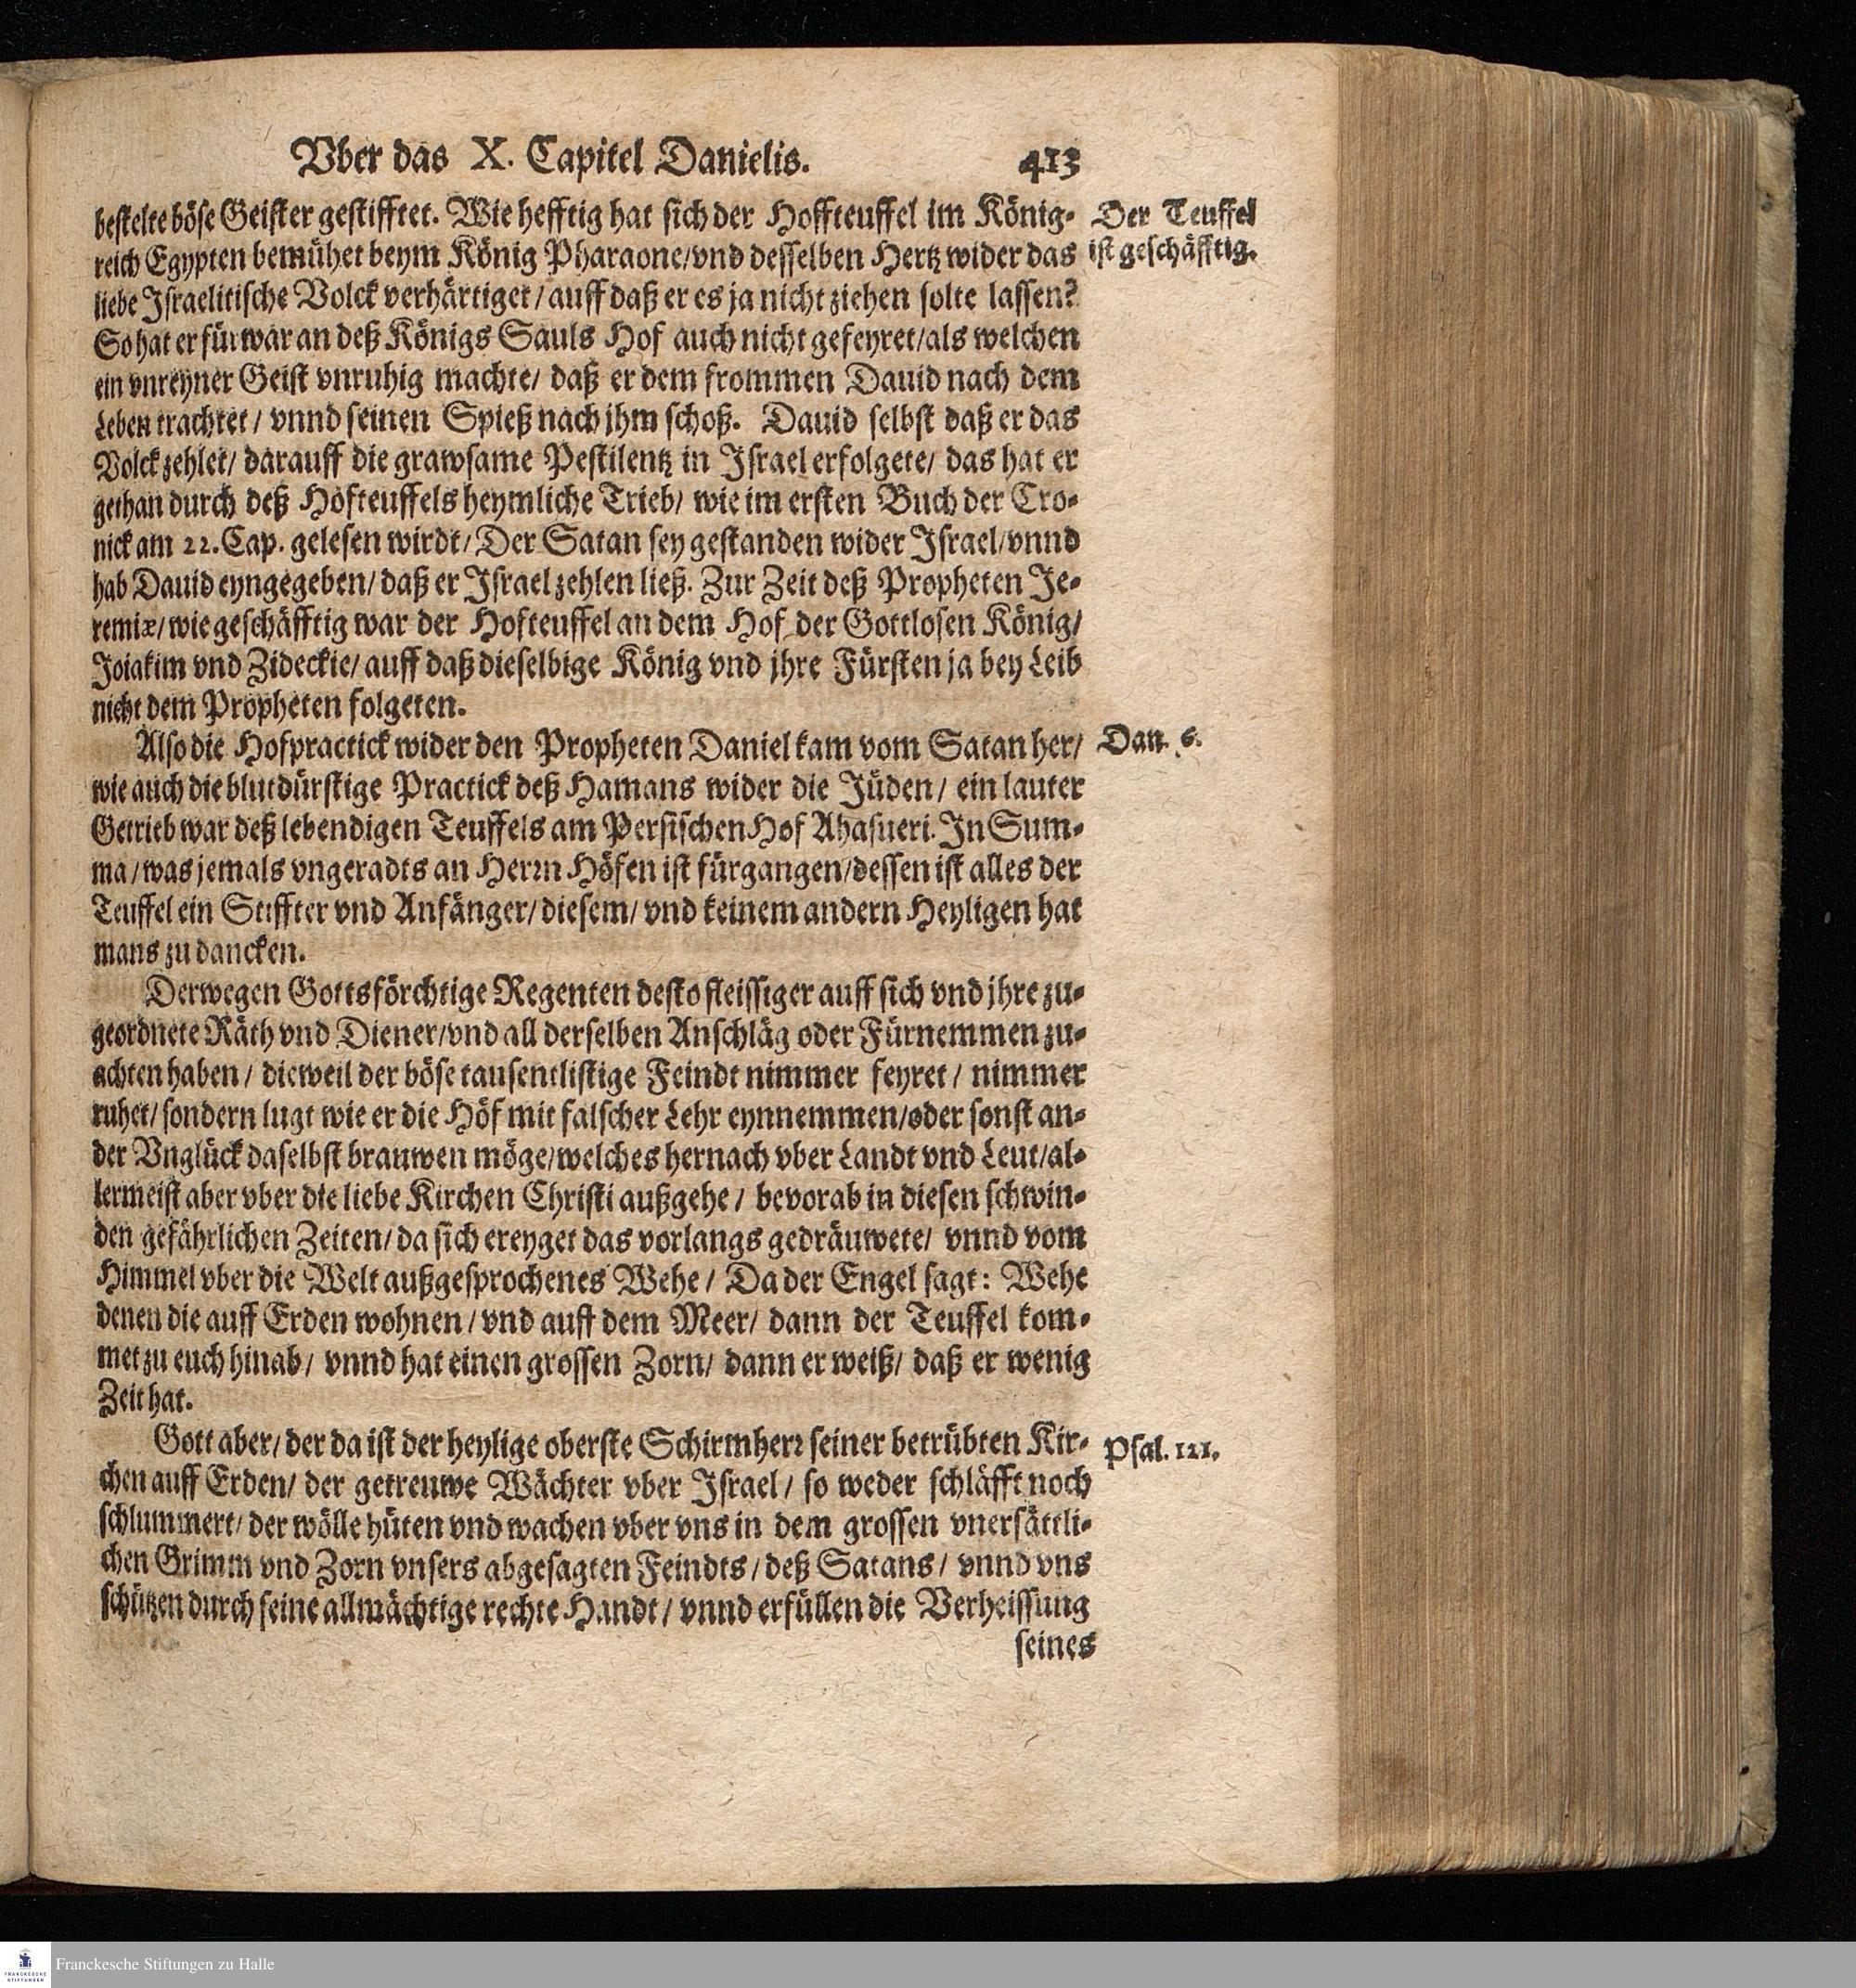 Vber das X. Capitel Danielis. 413
bestelte böse Geister gestifftet. Wie hefftig hat sich der Hoffteuffel im König-
reich Egypten bemühet beym König Pharaone/vnd desselben Hertz wider das
liebe Israelitische Volck verhärtiget/ auff daß er es ja nicht ziehen solte lassen?
So hat er fürwar an deß Königs Sauls Hof auch nicht gefeyret/als welchen
ein vnreyner Geist vnruhig machte/ daß er dem frommen Dauid nach dem
Leben trachtet/ vnnd seinen Spieß nach jhm schoß. Dauid selbst daß er das
Volck zehlet/ darauff die grawsame Pestilentz in Israel erfolgete/ das hat er
gethan durch deß Hofteuffels heymliche Trieb/ wie im ersten Buch der Cro-
nick am 22. Cap. gelesen wirdt/ Der Satan sey gestanden wider Israel/vnnd
hab Dauid eyngegeben/ daß er Israel zehlen ließ. Zur Zeit deß Propheten Je-
remiæ/ wie geschäfftig war der Hofteuffel an dem Hof der Gottlosen König/
Joiakim vnd Zideckie/ auff daß dieselbige König vnd jhre Fürsten ja bey Leib
nicht dem Propheten folgeten.
Also die Hofpractick wider den Propheten Daniel kam vom Satan her/
wie auch die blutdürstige Practick deß Hamans wider die Jüden/ ein lauter
Getrieb war deß lebendigen Teuffels am Persischen Hof Ahasueri. In Sum-
ma/ was jemals vngeradts an Herrn Höfen ist fürgangen/dessen ist alles der
Teuffel ein Stiffter vnd Anfänger/ diesem/ vnd keinem andern Heyligen hat
mans zu dancken.
Derwegen Gottsförchtige Regenten desto fleissiger auff sich vnd jhre zu-
geordnete Räth vnd Diener/vnd all derselben Anschläg oder Fürnemmen zu-
achten haben/ dieweil der böse tausentlistige Feindt nimmer feyret/ nimmer
ruhet/ sondern lugt wie er die Höf mit falscher Lehr eynnemmen/oder sonst an-
der Vnglück daselbst brauwen möge/welches hernach vber Landt vnd Leut/al-
lermeist aber vber die liebe Kirchen Christi außgehe/ bevorab in diesen schwin-
den gefährlichen Zeiten/ da sich ereyget das vorlangs gedräuwete/ vnnd vom
Himmel vber die Welt außgesprochenes Wehe/ Da der Engel sagt: Wehe
denen die auff Erden wohnen/ vnd auff dem Meer/ dann der Teuffel kom-
met zu euch hinab/ vnnd hat einen grossen Zorn/ dann er weiß/ daß er wenig
Zeit hat.
Gott aber/ der da ist der heylige oberste Schirmherr seiner betrübten Kir-
chen auff Erden/ der getreuwe Wächter vber Israel/ so weder schläfft noch
schlummert/ der wölle hüten vnd wachen vber vns in dem grossen vnersättli-
chen Grimm vnd Zorn vnsers abgesagten Feindts/ deß Satans/ vnnd vns
schützen durch seine allmächtige rechte Handt/ vnnd erfüllen die Verheissung
seines
Der Teuffel
ist geschäfftig.
Dan. 6.
Psal. 121.
FRANCKESCHE
STIFTUNGEN
Franckesche Stiftungen zu Halle